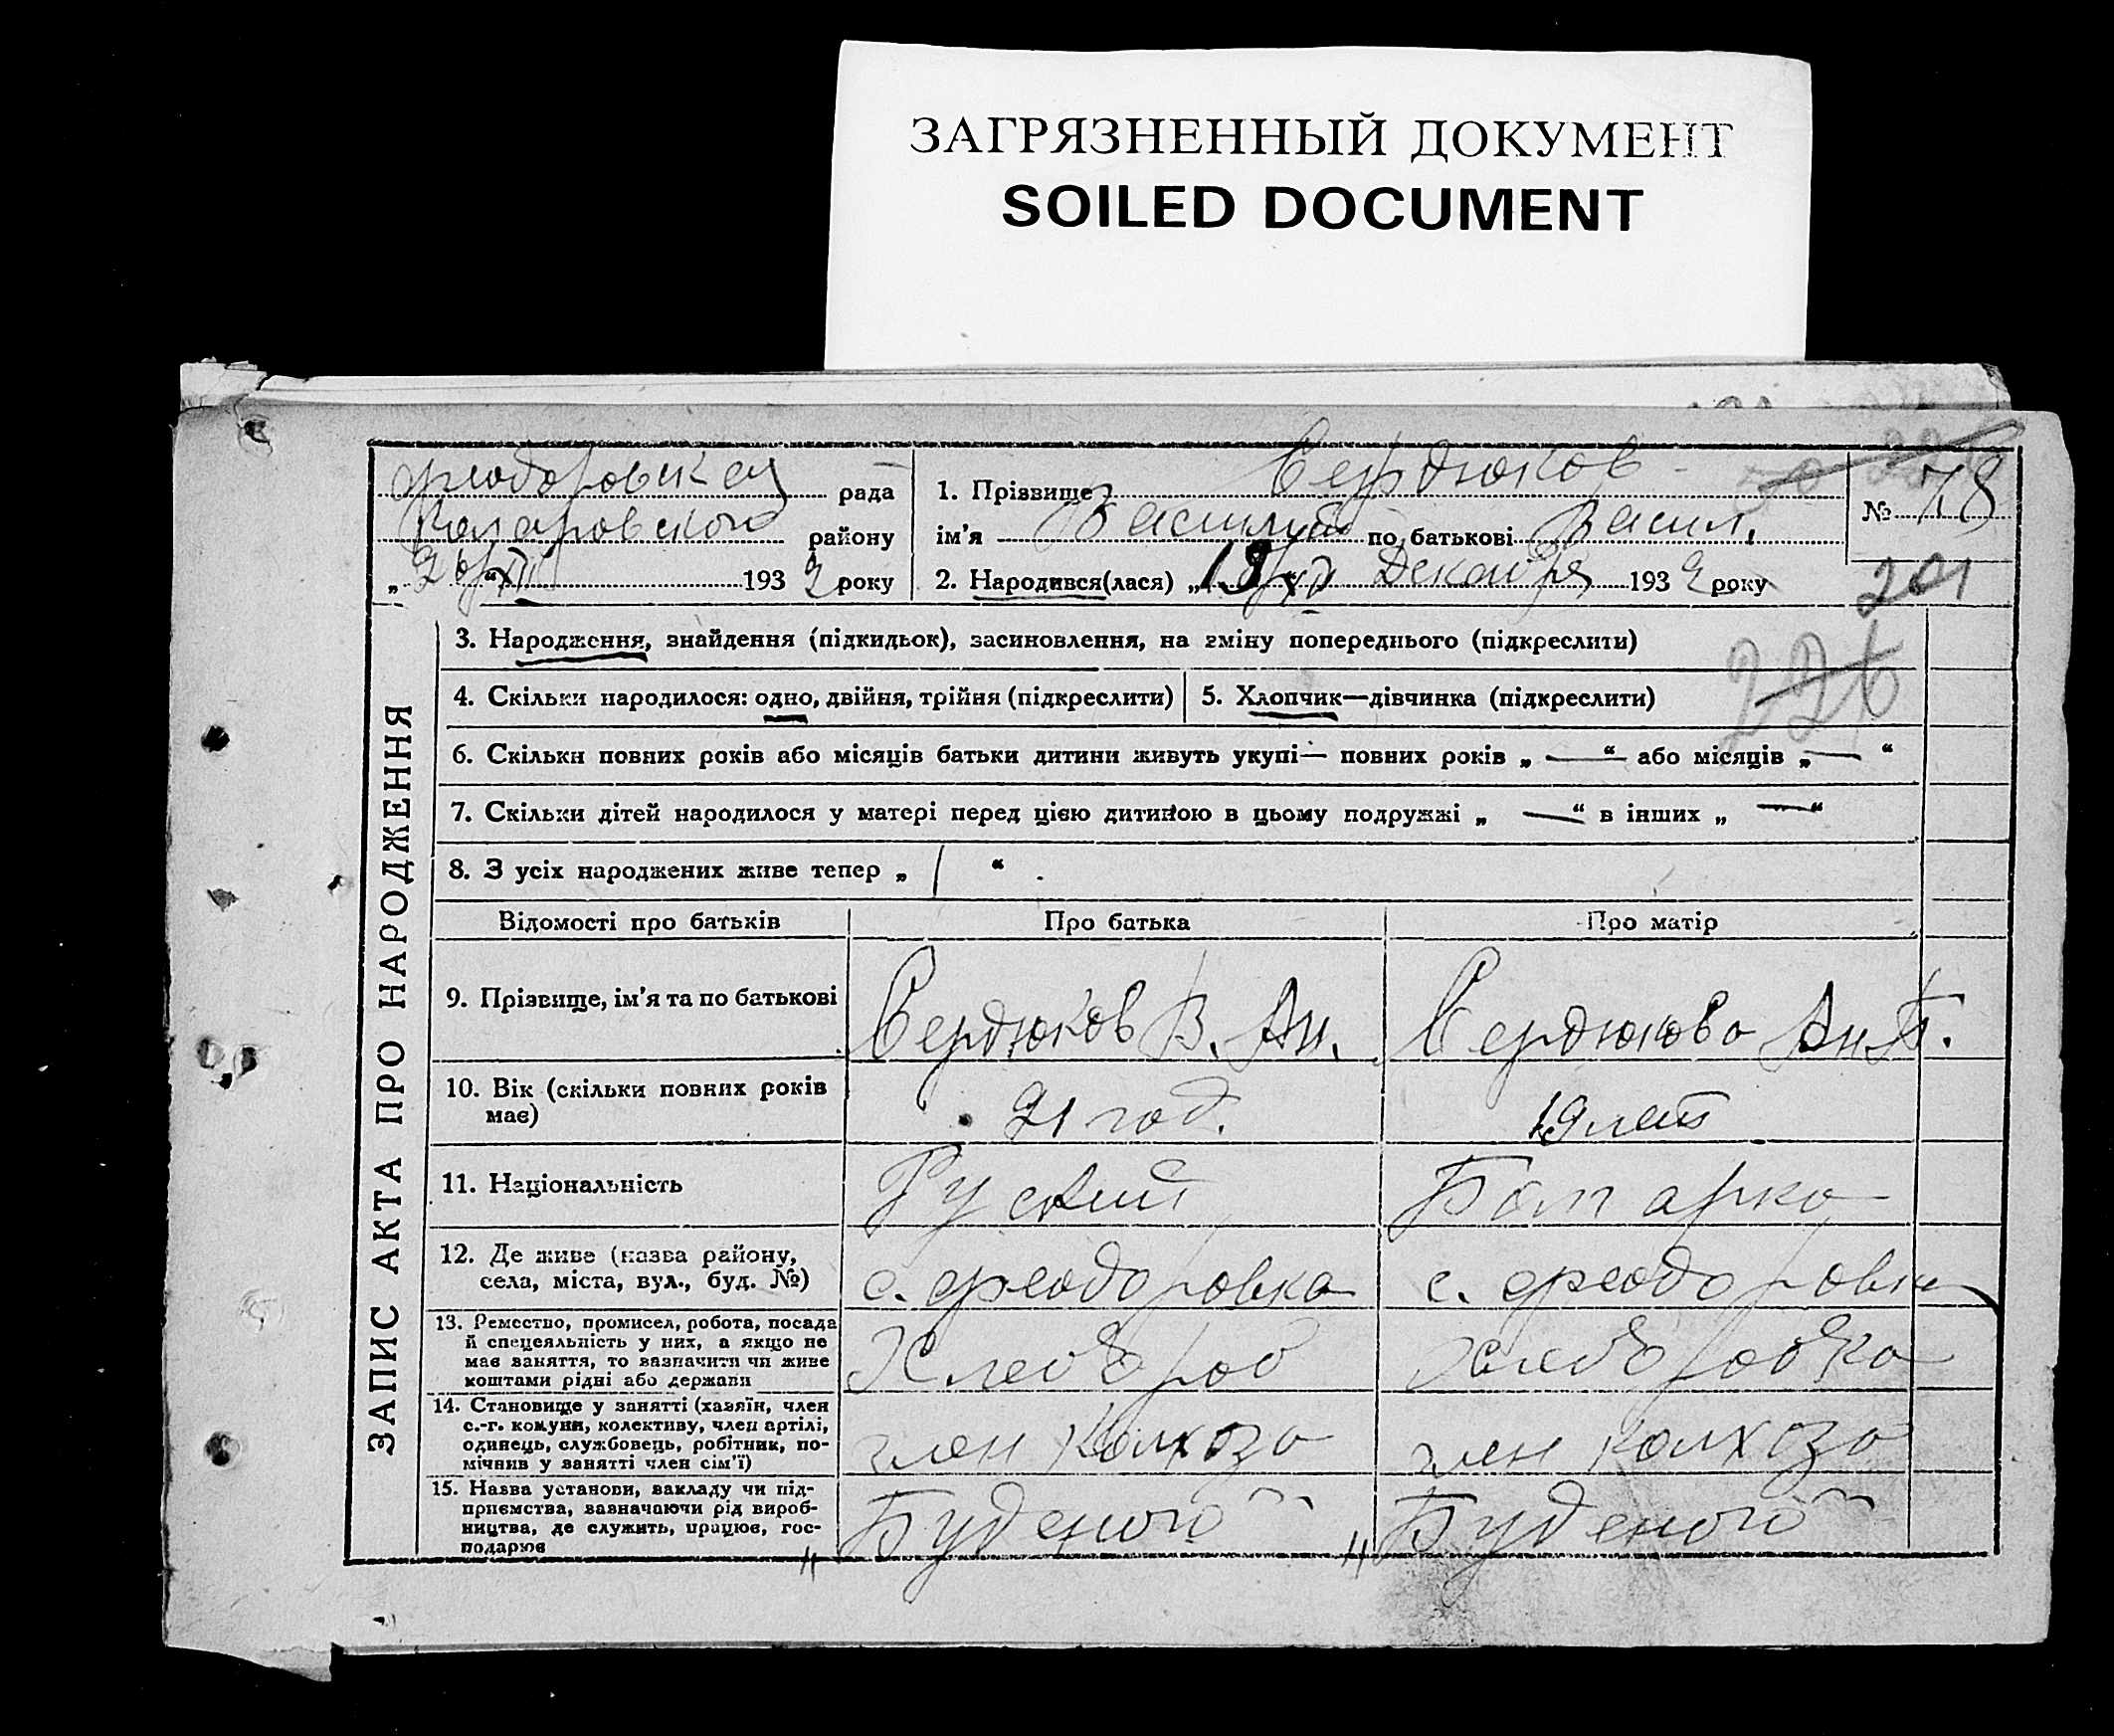 ЗАГРЯЗНЕННЫЙ ДОКУМЕНТ
SOILED DOCUMENT
феодоровская рада
района
„26/XII“ 1932 року
1. Прізвище Сердюков
ім'я Василий по батькові Васил.
2. Народився(лася) „19“ Декабря 1932 року
№ 78
201
226
ЗАПИС АКТА ПРО НАРОДЖЕННЯ
3. Народження, знайдення (підкидьок), засиновлення, на зміну попереднього (підкреслити)
4. Скільки народилося: одно, двійня, трійня (підкреслити)
5. Хлопчик—дівчинка (підкреслити)
6. Скільки повних років або місяців батьки дитини живуть укупі— повних років „ — “ або місяців „ — “
7. Скільки дітей народилося у матері перед цією дитиною в цьому подружжі „ — “ в інших „ — “
8. З усіх народжених живе тепер „ / “
Відомості про батьків Про батька Про матір
9. Прізвище, ім'я та по батькові Сердюков В. Ан. Сердюкова Ан. П.
10. Вік (скільки повних років має) 21 год. 19 лет
11. Національність Руский Болгарка
12. Де живе (назва району,
села, міста, вул., буд. №) с. феодоровка с. феодоровка
13. Ремество, промисел, робота, посада
й спецеяльність у них, а якщо не
має заняття, то зазначити чи живе
коштами рідні або держави
Хлебороб Хлеборобка
14. Становище у занятті (хазяїн, член
с.-г. комуни, колективу, член артілі,
одинець, службовець, робітник, по-
мічник у занятті член сім'ї)
член колхоза член колхоза
15. Назва установи, закладу чи під-
приємства, зазначаючи рід вироб-
ництва, де служить, працює, гос-
подарює
„Буденого“ „Буденого“